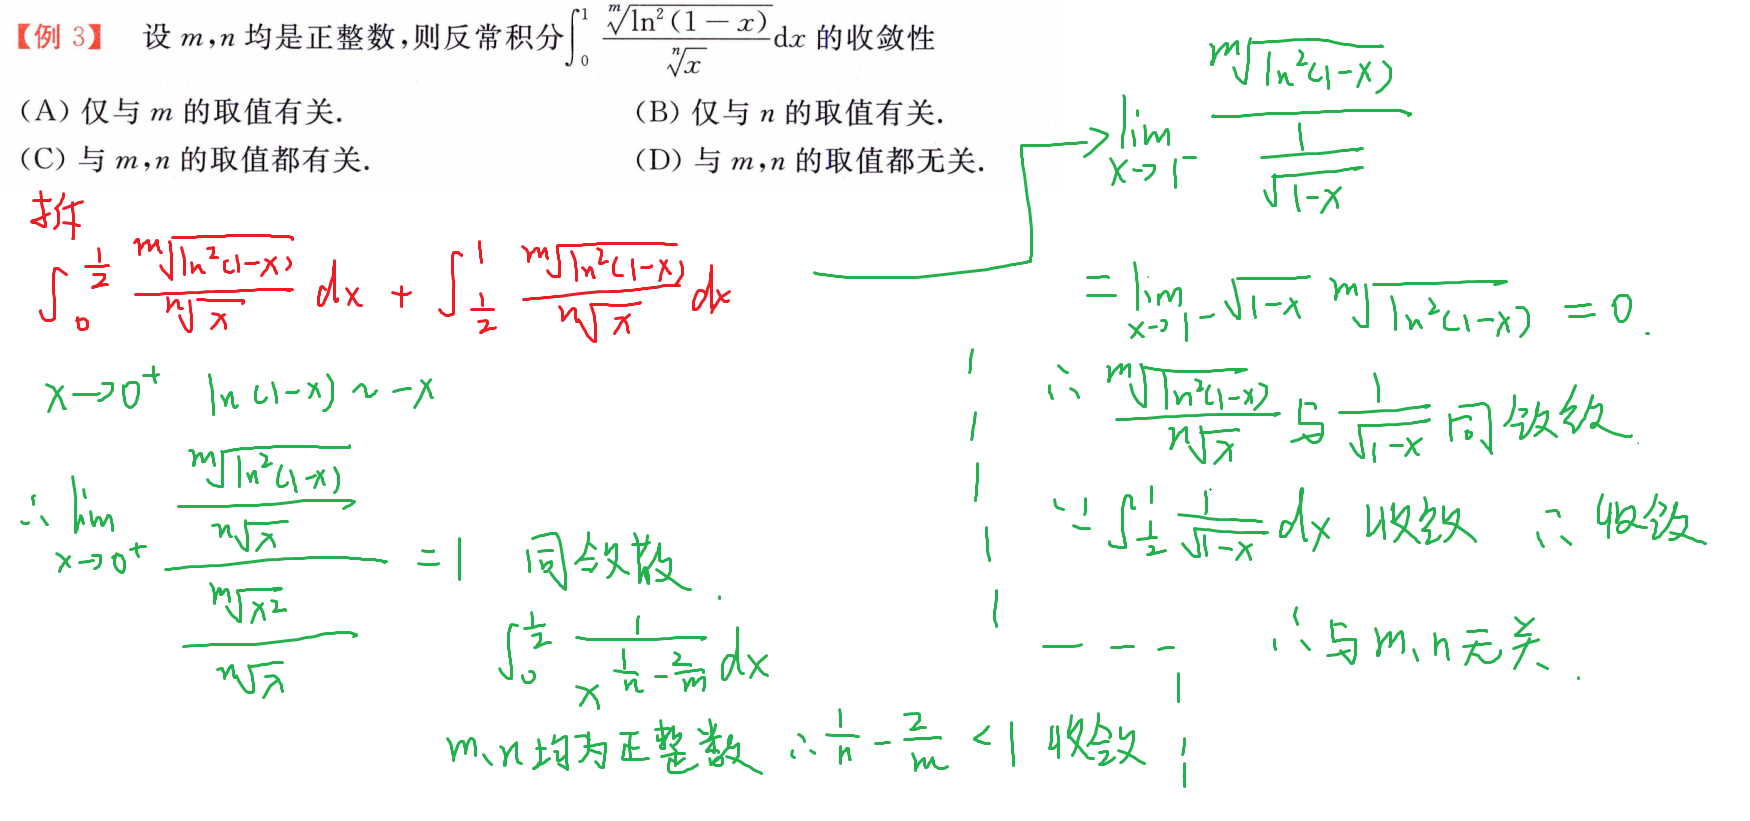 【例 3】 设 m,n 均是正整数,则反常积分∫₀¹ \frac{\sqrt[m]{\ln^2(1-x)}}{\sqrt[n]{x}}dx 的收敛性
(A) 仅与 m 的取值有关. (B) 仅与 n 的取值有关.
(C) 与 m,n 的取值都有关. (D) 与 m,n 的取值都无关.
拆
\int_0^{\frac{1}{2}} \frac{\sqrt[m]{\ln^2(1-x)}}{\sqrt[n]{x}} dx + \int_{\frac{1}{2}}^1 \frac{\sqrt[m]{\ln^2(1-x)}}{\sqrt[n]{x}} dx
x→0⁺ ln(1-x) ~ -x
∴ \lim_{x→0^+} \frac{\frac{\sqrt[m]{\ln^2(1-x)}}{\sqrt[n]{x}}}{\frac{\sqrt[m]{x^2}}{\sqrt[n]{x}}} = 1 同敛散.
\int_0^{\frac{1}{2}} \frac{1}{x^{\frac{1}{n}-\frac{2}{m}}} dx
m、n均为正整数 ∴ \frac{1}{n} - \frac{2}{m} < 1 收敛
\lim_{x→1^-} \frac{\sqrt[m]{\ln^2(1-x)}}{\frac{1}{\sqrt{1-x}}}
= \lim_{x→1^-} \sqrt{1-x} \sqrt[m]{\ln^2(1-x)} = 0.
∴ \frac{\sqrt[m]{\ln^2(1-x)}}{\sqrt[n]{x}} 与 \frac{1}{\sqrt{1-x}} 同敛
∵ \int_{\frac{1}{2}}^1 \frac{1}{\sqrt{1-x}} dx 收敛 ∴ 收敛
∴ 与m、n无关.